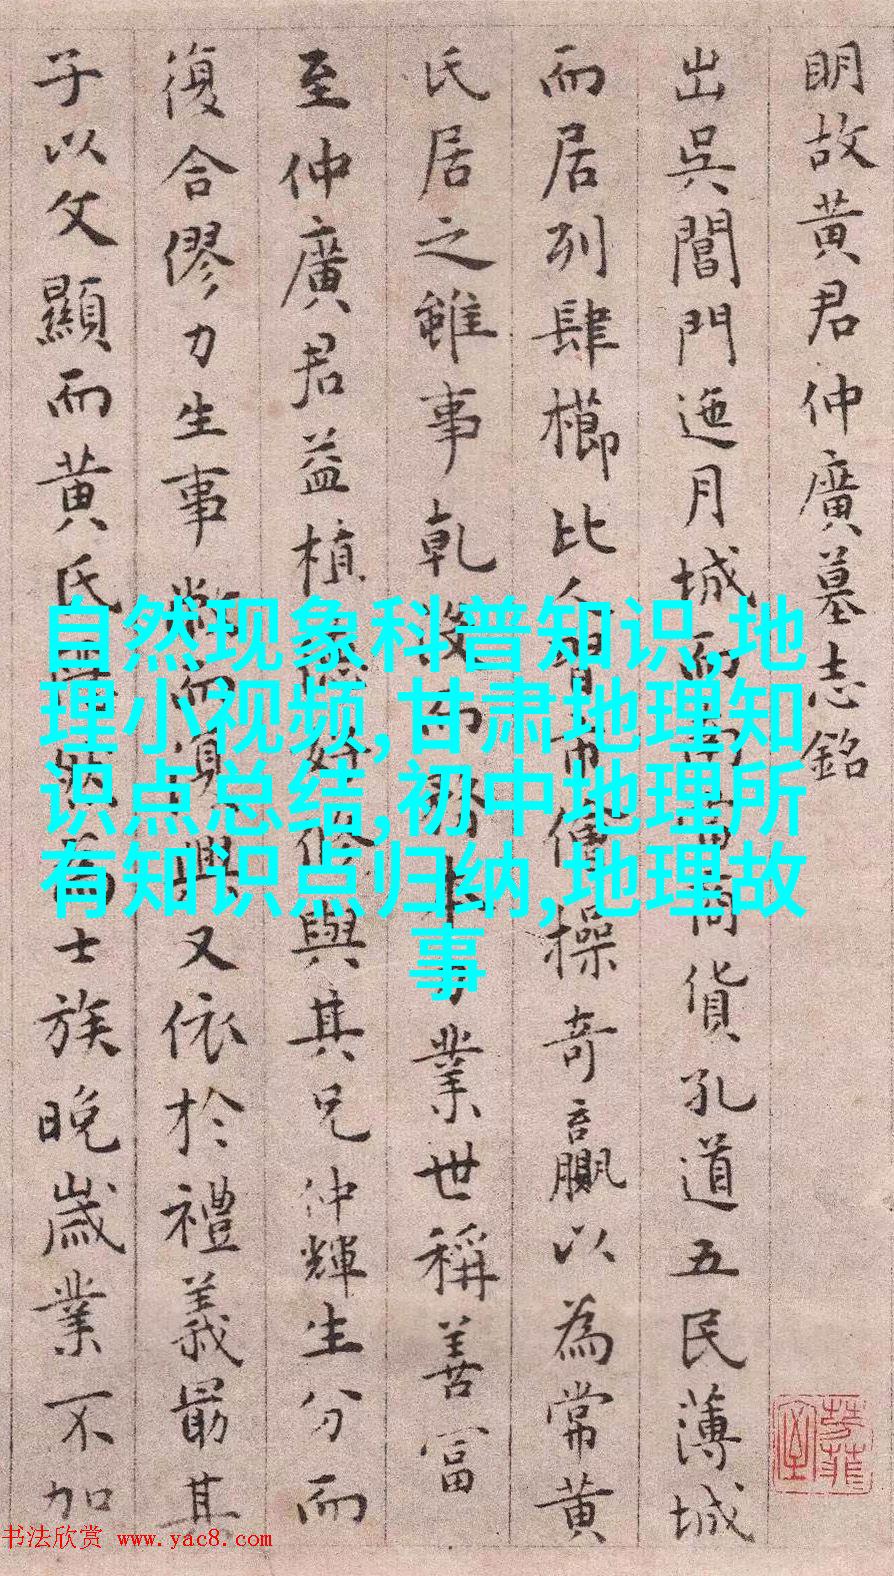 明故黄君仲廣墓志銘
出吳閶門迤月城而南商貨孔道五民薄城
而居列肆櫛比人習市儈操奇贏以為常黄
氏居之雖事乾業世稱善富
至仲廣君益植好脩與其兄仲輝生分而
復合僇力生事而興又依於禮義最其
子以文顯而黄氏為士族晚歲業不加
自然现象科普知识,地
理小视频,甘肃地理知
识点总结,初中地理所
有知识点归纳,地理故
事
书法欣赏 www.yac8.com